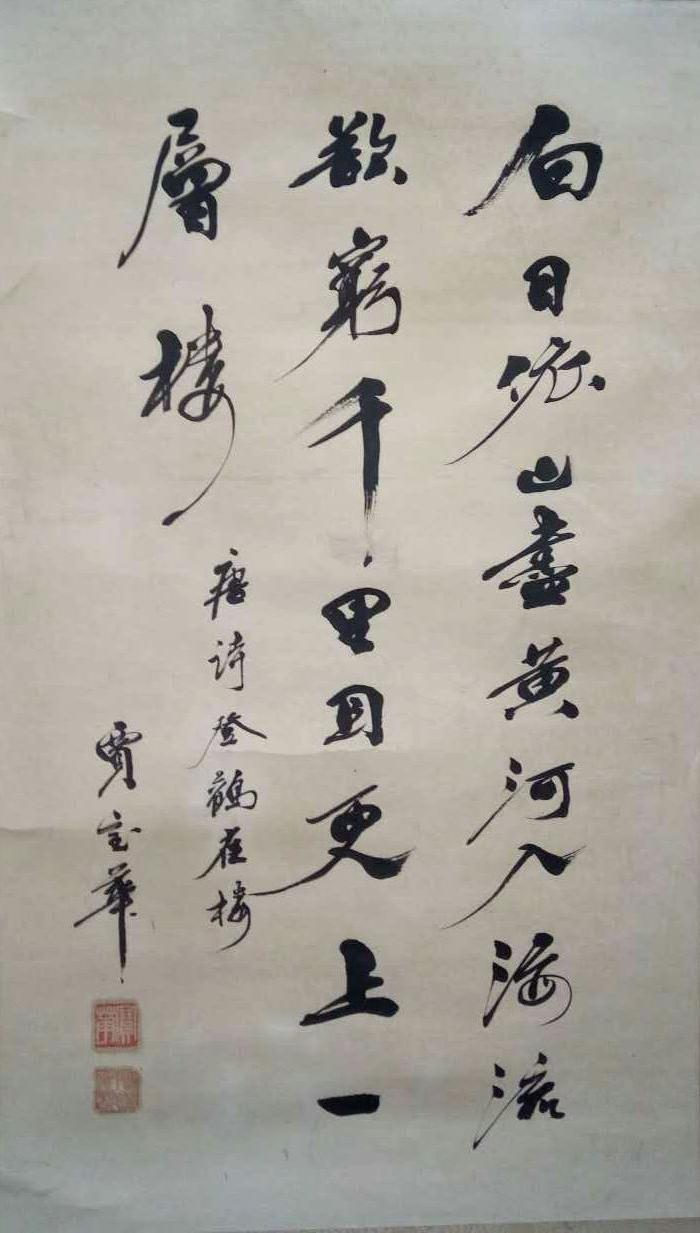 白日依山盡黄河入海流
欲窮千里目更上一
層樓
唐詩登鸛雀樓
賈宝華